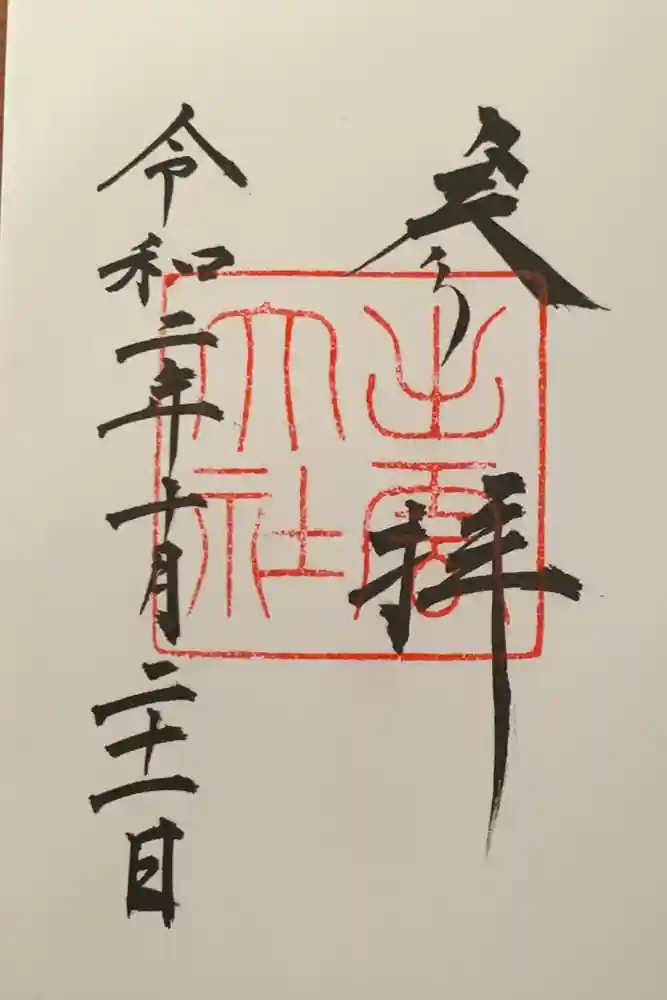 参拝
出雲
大社
令和二年十月二十一日